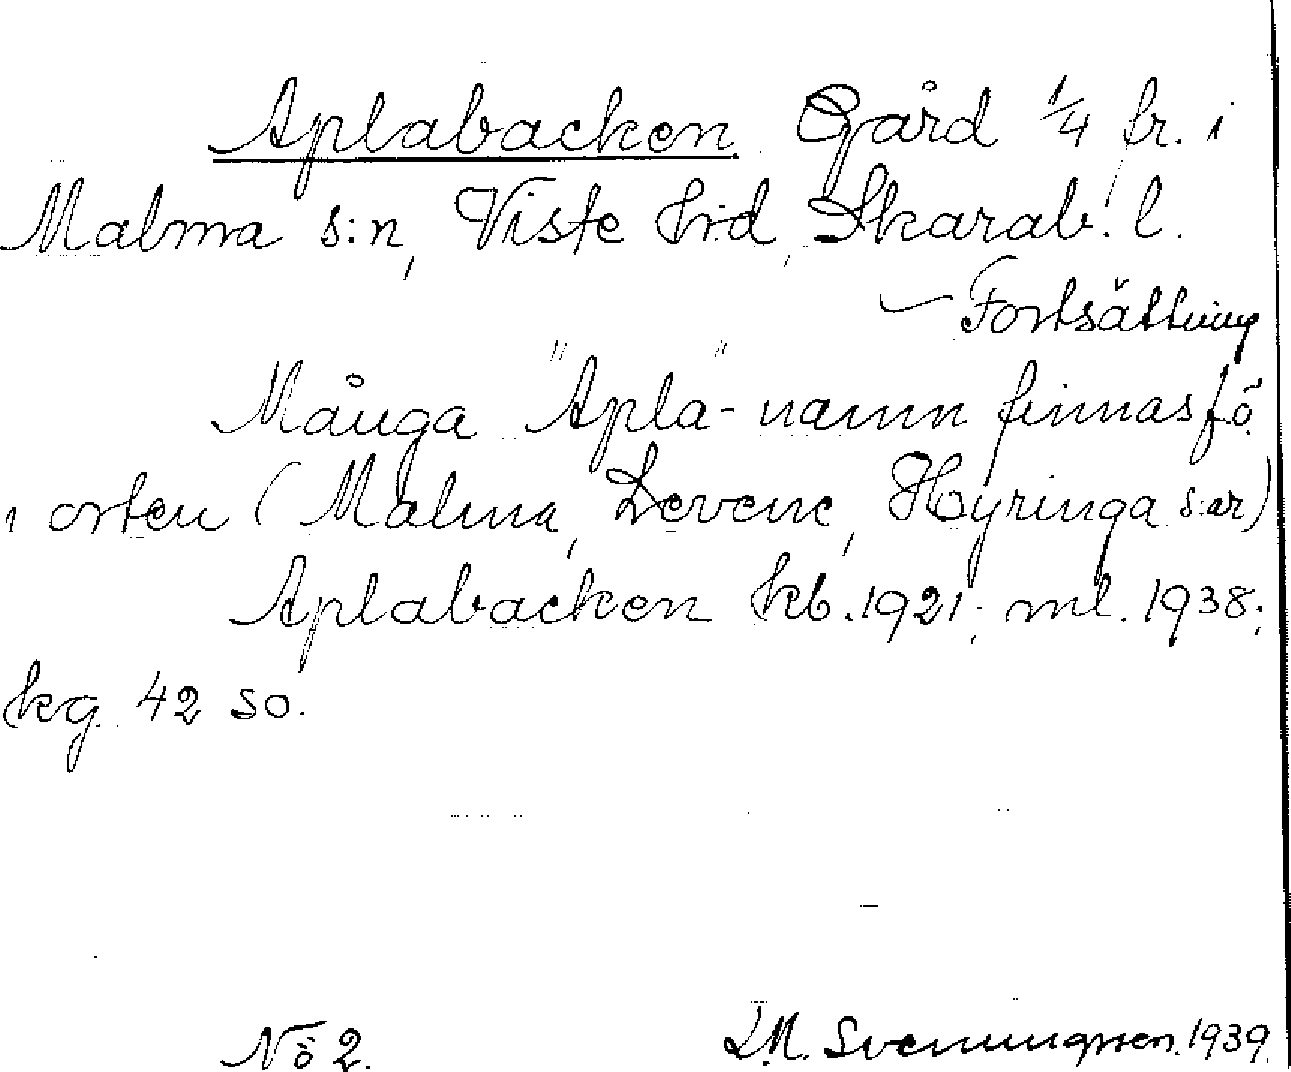 Aplabacken Gård 1/4 fr. i
Malma s:n, Viste h:d, Skarab. l.
— Fortsättning
Många "Apla"-namn finnas fö.
i orten (Malma, Levene, Hyringa s:ar)
Aplabacken kb. 1921; ml. 1938;
kg. 42 so.
No 2.
L.M. Svenungsson. 1939.